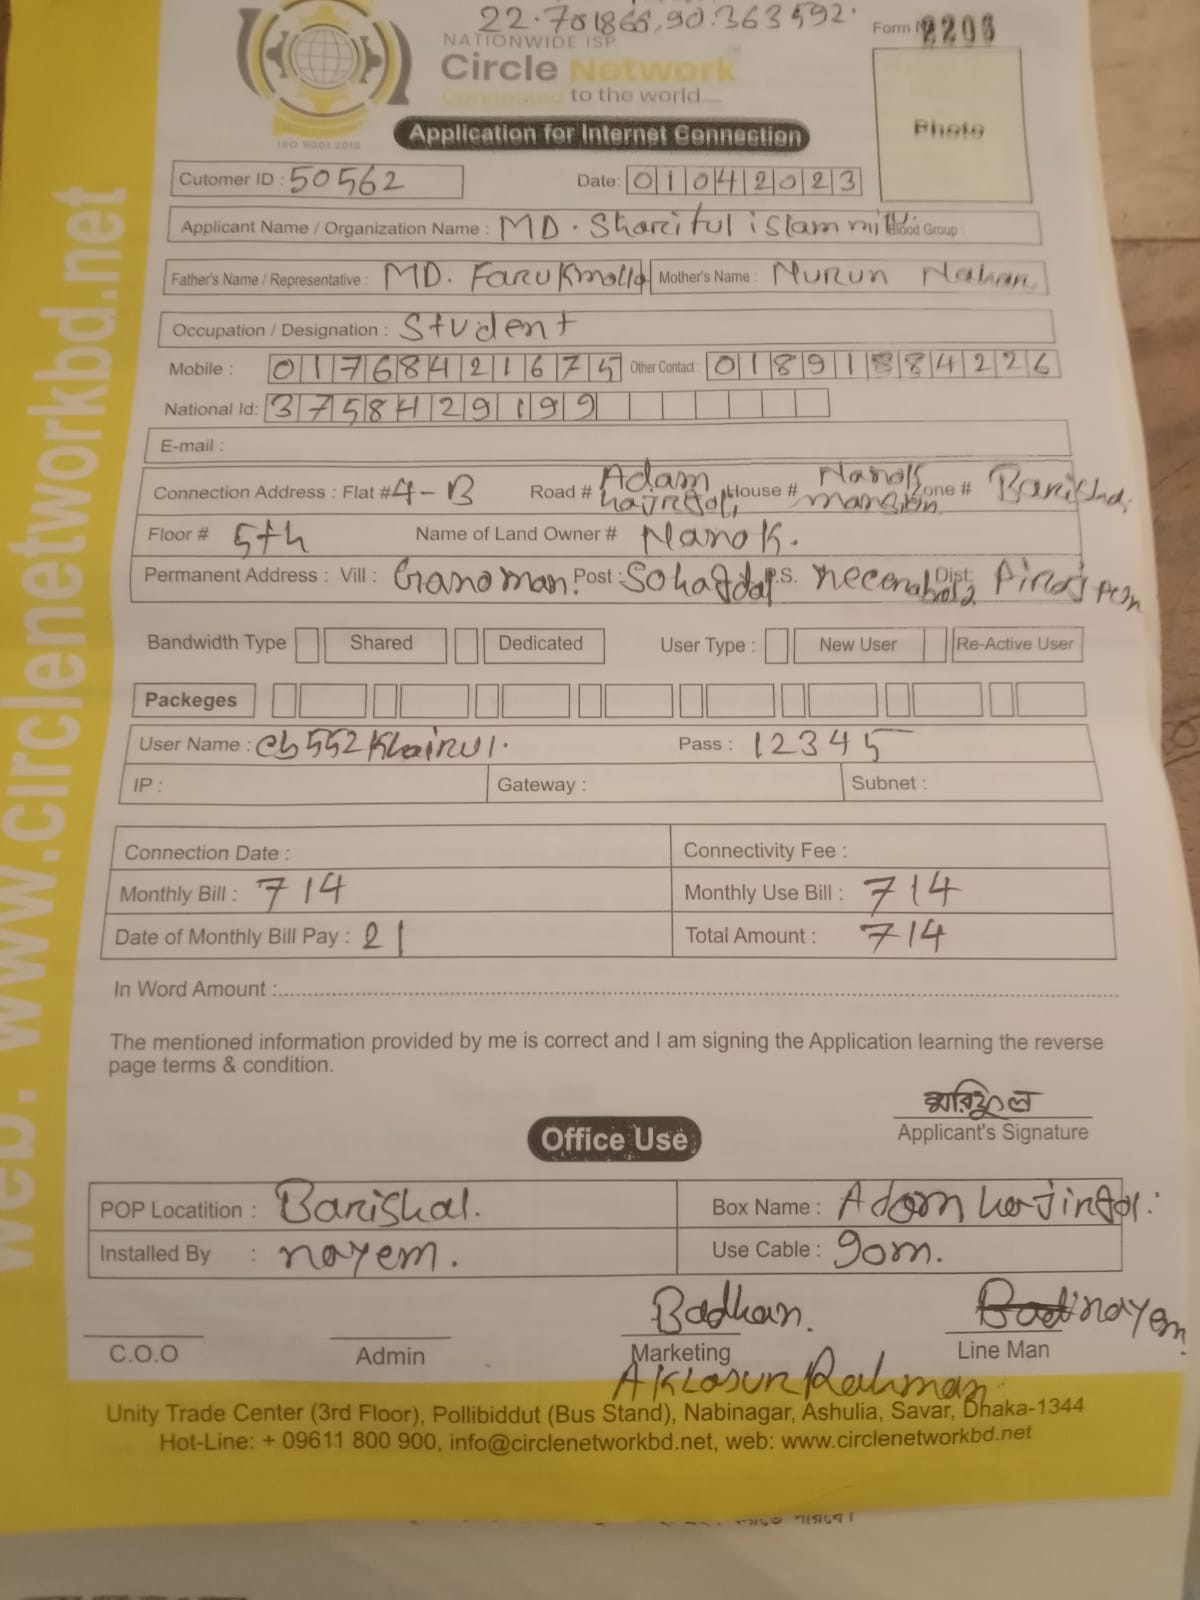 22.701866,90.363592.
Form 2206
NATIONWIDE ISP
Circle Network
Connected to the world.....
ISO 9001:2015
Application for Internet Connection
Photo
Cutomer ID : 50562 Date: 01042023
Applicant Name / Organization Name : MD. Shariful islam Blood Group :
Father's Name / Representative : MD. Faruk molla Mother's Name : Nurun Nahar
Occupation / Designation : Student
Mobile : 01768421675 Other Contact : 01891884226
National Id: 3758429199
E-mail :
Connection Address : Flat # 4-B Road # Adam House # Nanok mansion Zone # Barishal
Floor # 5th Name of Land Owner # Nanok.
Permanent Address : Vill : Ganoman. Post : Sohagdal P.S. Dist: Pirojpur
Bandwidth Type Shared Dedicated User Type : New User Re-Active User
Packeges
User Name : cb552Khairul. Pass : 12345
IP : Gateway : Subnet :
Connection Date : Connectivity Fee :
Monthly Bill : 714 Monthly Use Bill : 714
Date of Monthly Bill Pay : 21 Total Amount : 714
In Word Amount :
The mentioned information provided by me is correct and I am signing the Application learning the reverse
page terms & condition.
শরিফুল
Applicant's Signature
Office Use
POP Locatition : Barishal. Box Name : Adom hojirgol.
Installed By : nayem. Use Cable : 90m.
Badhan. nayem
C.O.O Admin Marketing Line Man
Aklasur Rahman
Unity Trade Center (3rd Floor), Pollibiddut (Bus Stand), Nabinagar, Ashulia, Savar, Dhaka-1344
Hot-Line: + 09611 800 900, info@circlenetworkbd.net, web: www.circlenetworkbd.net
web: www.circlenetworkbd.net